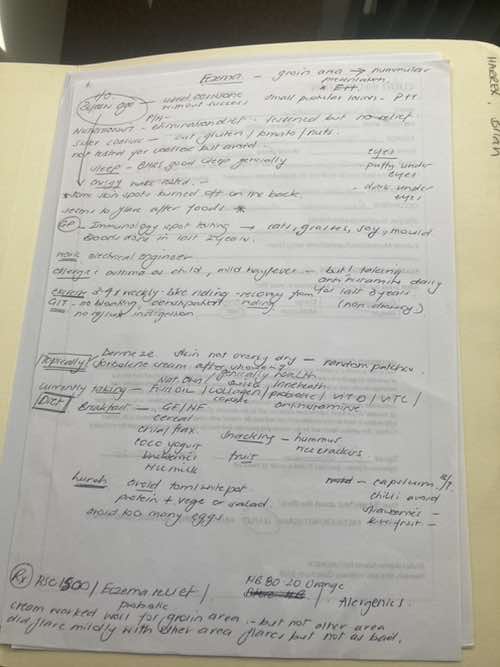 HAEREK, Brian
Eczema - groin area → nummular
H/O presentation
* ETT
2 years ago - used cortisone small pustular lesions - PTT
without success
P/H -
Naturopath - elimination diet - lessened but no relief
suspect coeliac - cut gluten / tomato / nuts.
not tested for coeliac but avoid. eyes
sleep - 8 HRS good sleep generally puffy under
eyes
energy wakes rested. - dark under
eyes
*some skin spots burned off on the back.
seems to flare after foods *
GP - Immunology spot testing → cats, grasses, soy, mould
Bloods done in last 2 years.
work electrical engineer
allergies asthma as child, mild hayfever - but! taking
antihistamine daily
exercise 3-4x weekly bike riding - recovery from for last 3 years
GIT - no bloating constipation riding (non drowsy)
no reflux indigestion
Topically Dermeze skin not overly dry - random patches
Sorbolene cream after showering
generally health
currently taking - Fish oil / collagen / probiotic / VIT D / VIT C /
antihistamine
Diet
Breakfast - GF/NF
cereal
chia/flax snacking - hummus
coco yogurt rice crackers
fruit
nut milk
lunch avoid tom/white pot - capsicum
protein + vege or salad. chilli avoid
avoid too many eggs strawberries -
kiwifruit -
Rx RSC 1500 / Eczema relief / MB 80-20 Orange
probiotic Alergenics
cream worked well for groin area - but not other area
did flare mildly with other area flares but not as bad.